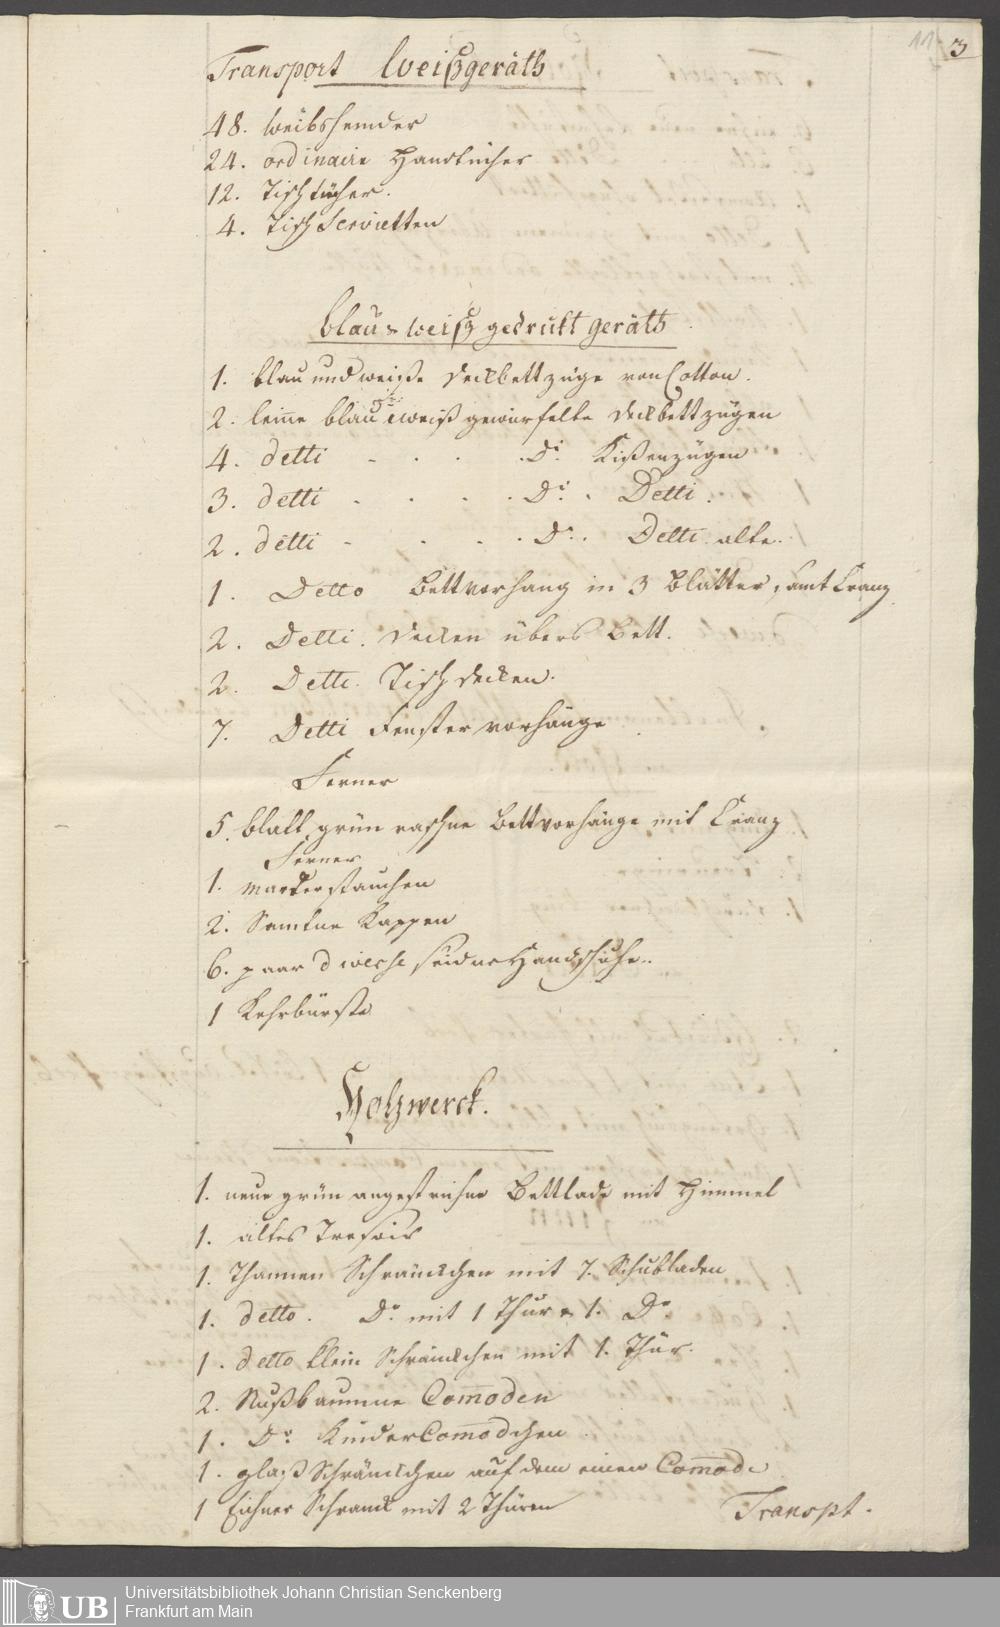 11 3
Transport Weißgeräth
48. Weibshemder
24. ordinaire Handtücher
12. Tischtücher.
4. Tisch Servietten
blau & weiß gedruckt geräth
1. blau und weiße Deckbettzüge von Cotton.
2. leinne blau weiß gewürfelte Deckbettzügen
4. detti - . . . . D:° Kißenzügen
3. detti . . . . D:° . Detti.
2. detti - . . . D:° . Detti alte.
1. Detto Bettvorhang in 3 Blätter, samt Cranz
2. Detti. Decken übers Bett.
2. Detti. Tisch decken.
7. Detti Fenster vorhänge
Ferner
5. blatt grün raschne Bettvorhänge mit Cranz
Ferner
1. Marderstauchen
2. Samtne Kappen
6. paar diverse seidne Handschuhe..
1 Kehrbürste
Holzwerck.
1. neue grün angestrichne Bettlade mit Himmel
1. altes Tresoir
1. Thannen Schränckgen mit 7. Schubladen
1. detto. D:° mit 1 Thür & 1. D:°
1. detto klein Schränckchen mit 1. Thür.
2. Nußbaumne Com̅oden
1. D:° KinderCom̅odchen
1. glaß Schränckgen auf dem einen Com̅ode
1 Eichner Schranck mit 2 Thüren
Transpt.
UB Universitätsbibliothek Johann Christian Senckenberg
Frankfurt am Main